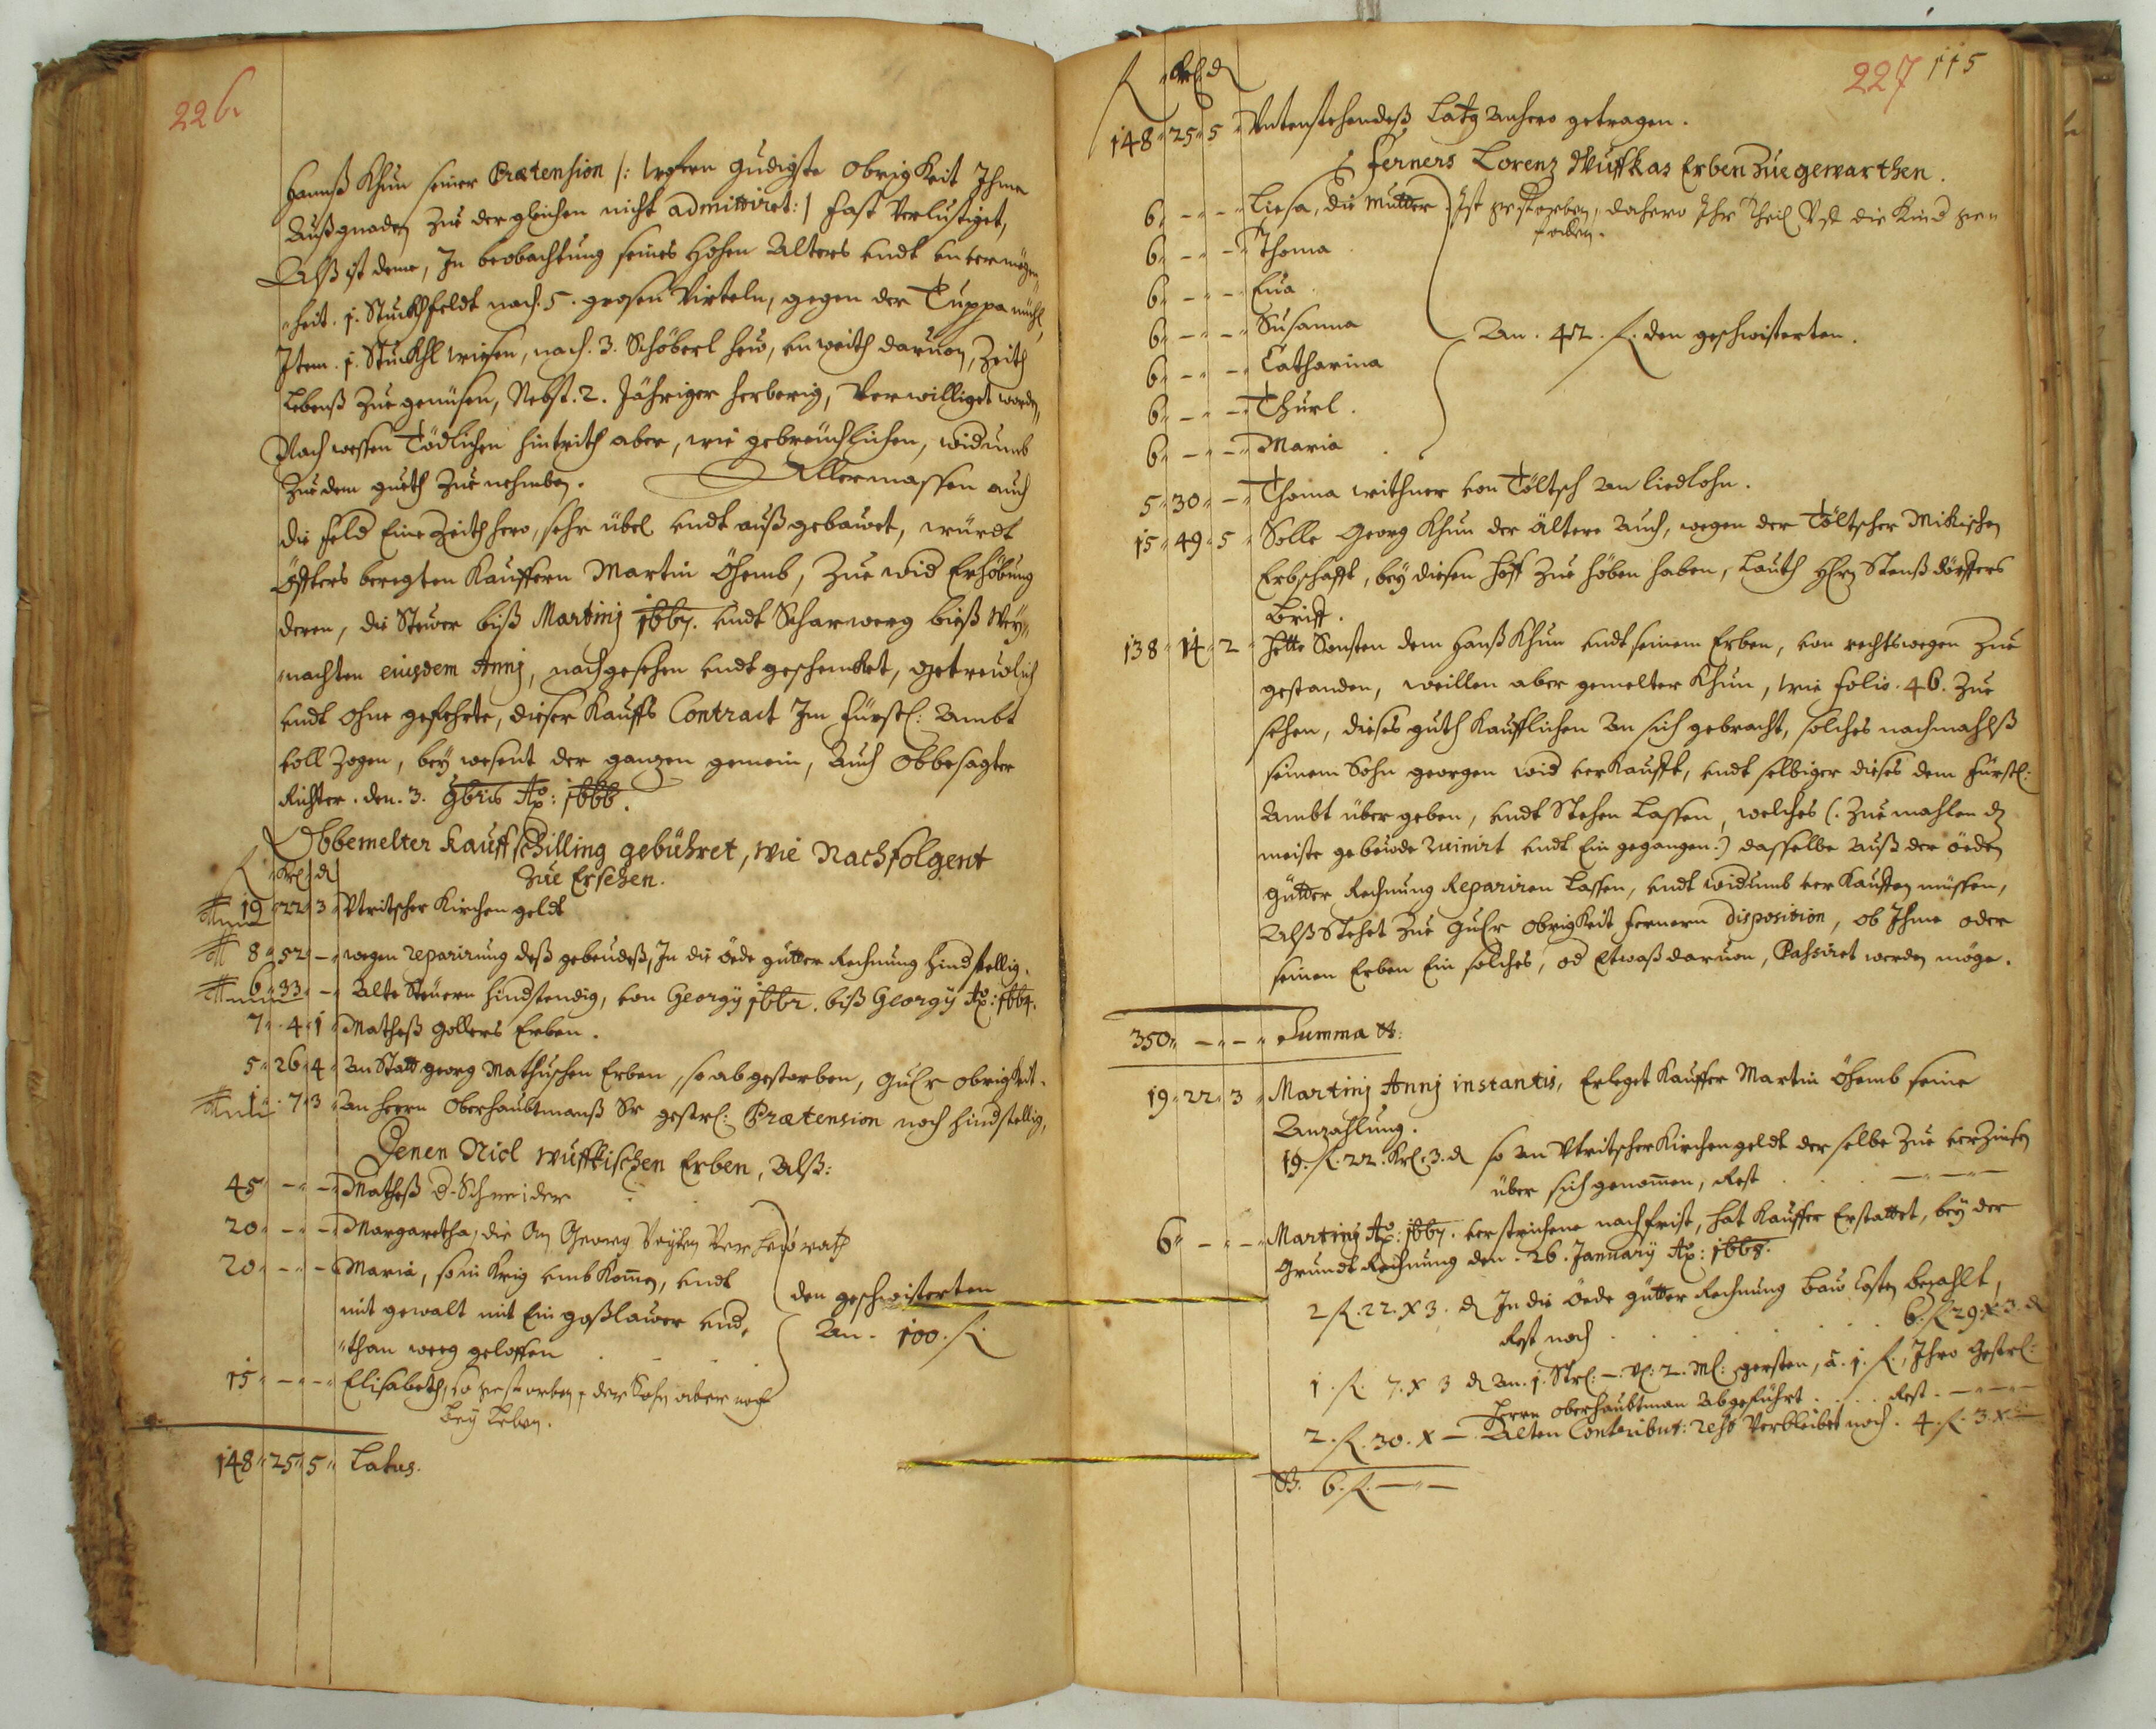 226.
Hannß Khun seiner Prætension /: wofern gnädigste Obrigkeit Ihme
Außgnaden zue dergleichen nicht admittiret :/ fast Verlustiget,
Alß ist deme, In beobachtung seines Hohen Alters undt unvermögen¬
heit. 1. Stuckhfeldt nach. 5. grosen Virteln, gegen der Tuppa mühl,
Item. 1. Stuckhl wiesen, nach. 3. Schöberl hew, unweith daruon, Zeith
Lebenß zue genüsen, Nebst. 2. Jähriger herberig, Verwilliget worden,
Nach wessen Tödlichen hintrith aber, wie gebreüchlichen, widumb
zue dem gueth zue nehmben. Allermassen auch
die feld Eine Zeith hero, sehr übel undt außgebawet, würdt
Öffters beregten Kauffern Martin Öhemb, zue wid Erhöbung
deren, die Stewer biß Martinj 1667. undt Scharwerg bieß Wey¬
nachten eiusdem Annj, nachgesehen undt geschenket, getrewlich
undt ohne gefehrte, dieser Kauffs Contract Im fürstl: Ambt
voll zogen, bey wesent der ganzen gemein, Auch obbesagter
Richter. den. 3. 9bris Aõ: 1666.
Obbemelter Kauffschilling gebühret, wie Nachfolgent
zue Ersehen.
f. Krl d
19 22 3 Utritscher Kirchen geldt
8 52 — wegen reparirung deß gebeudeß, In die Öede gütter Rechnung hindstellig.
6 33 — Alte Steüern hindstendig, von Georgÿ 1662. biß Georgÿ Aõ: 1664.
7 4 1 Matheß Gollers Erben.
5 26 4 An Statt georg Mathuschen Erben, so abgestorben, Gnäd. Obrigkeit.
1 7 3 An herrn Oberhaubtmanß Sr gestrl: Prætension noch hindstellig,
Denen Nicl Wuffkischen Erben, Alß:
45 — — Matheß d. Schneider
20 — — Margaretha, die An Georg Veithen Verheürath
20 — — Maria, so in Krig umbkommen, undt
mit gewalt mit Ein goßlawer undt,
than weeg geloffen
15 — — Elisabeth, so gestorben, der Sohn aber noch
bey Leben.
den geschwisterten
An. 100. f.
148 25 5 Latus.
227 115
f. Krl d
148 25 5 Untenstehendeß Latg anhero getragen.
Ferners Lorenz Wuffkas Erben zue gewarthen.
6 — — Liesa, die Mutter. Ist gestorben, dahero Ihr theil Auf die Kind gen
fallen.
6 — — Thoma
6 — — Eua
6 — — Susanna
An. 42. f. den geschwisterten.
6 — — Catharina
6 — — Thurl.
6 — — Maria
5 30 — Thoma withner von Töltsch an liedlohn.
15 49 5 Solle Georg Khun der ältere Auch, wegen der Töltscher Mikischen
Erbschafft, bey diesen hoff zue höben haben, Lauth Hern Stenßdörffers
Briff.
138 14 2 Hette Sonsten dem Hanß Khun undt seinem Erben, von rechtswegen zue
gestanden, weillen aber gemelter Khun, wie folio. 46. zue
sehen, dieses guth Kaufflichen an sich gebracht, solches nachmahlß
seinem Sohn georgen wid verkaufft, undt selbiger dieses dem fürstl:
Ambt übergeben, undt Stehen Lassen, welches (: zuemahlen d
meiste gebeude ruinirt undt Ein gegangen :) dasselbe auß der Öeden
gütter Rechnung Repariren Lassen, undt widumb verkauffen müssen,
Alß Stehet zue Gnäd. Obrigkeit fernern disposition, ob Ihme oder
seinen Erben Ein solches, od Etwaß daruon, Passiret werden möge.
350 — — Summa
19 22 3 Martinj Annj instantis, Erleget Kauffer Martin Öhemb seine
Anzahlung.
19. f. 22. Krl. 3. d so an Utritscher Kirchengeldt derselbe zue verzinsen
über sich genommen, Rest . . . — — —
6 — — Martinj Aõ: 1667. verstrichene nachfrist, hat Kauffer Erstattet, bey der
Grundt Rechnung den. 26. Januarÿ Aõ: 1668.
2 f. 22. x 3. d In die Öede gütter Rechnung baw Costen bezahlt,
Rest noch . . . 6. f 29. x 3. d
1. f. 7. x 3 d An. 1. Strl: —. Vl: 2. Ml: gersten, à. 1. f., Ihro Gestrl:
Herrn Oberhaubtman Abgeführt . . . Rest. — — —
2. f. 30. x — Alten Contribut: Rest Verbleibet noch. 4. f. 3. x —
6. f. — —